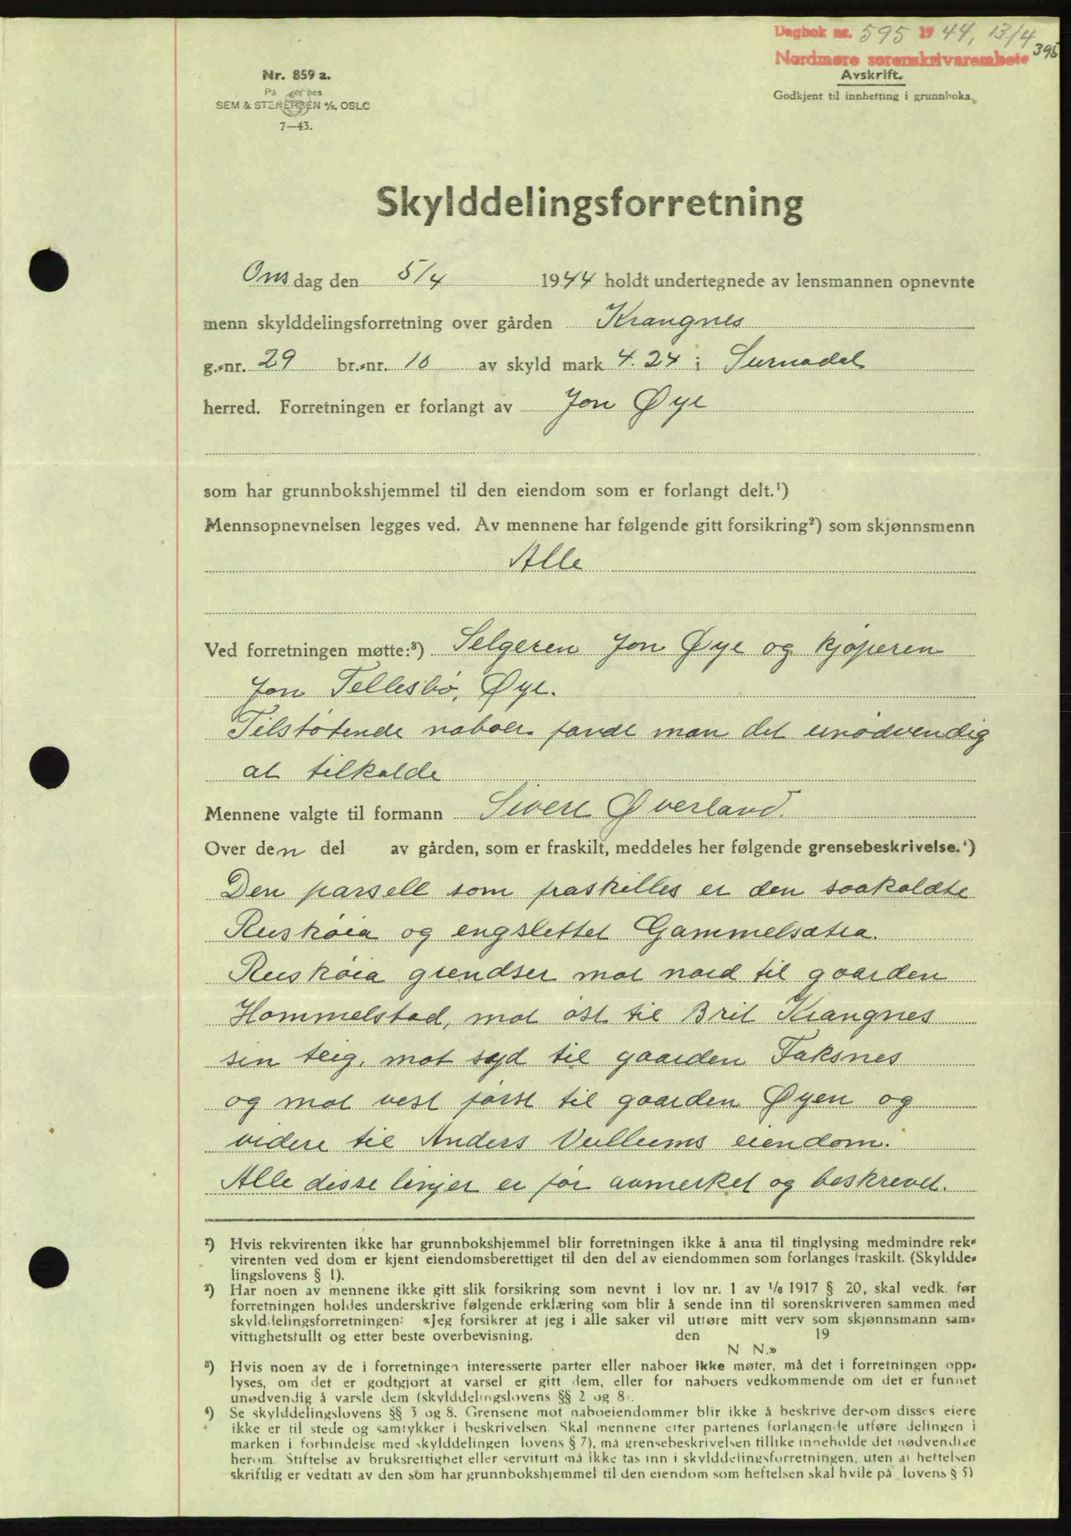 Dagbok nr. 595 1944, 13/4
Nordmøre sorenskrivarembete
395
Nr. 859 a.
SEM & STENERSEN A/S, OSLO
7—43.
Avskrift.
Godkjent til innhefting i grunnboka.
Skylddelingsforretning
Onsdag den 5/4 1944 holdt undertegnede av lensmannen opnevnte
menn skylddelingsforretning over gården Krangnes
g.-nr. 29 br.-nr. 10 av skyld mark 4.24 i Surnadal
herred. Forretningen er forlangt av Jon Øye
som har grunnbokshjemmel til den eiendom som er forlangt delt.¹)
Mennsopnevnelsen legges ved. Av mennene har følgende gitt forsikring²) som skjønnsmenn
Alle
Ved forretningen møtte:³) Selgeren Jon Øye og kjøperen
Jon Tellesbø, Øye.
Tilstøtende naboer fandt man det unødvendig
at tilkalde
Mennene valgte til formann Sivert Øverland.
Over den del av gården, som er fraskilt, meddeles her følgende grensebeskrivelse.⁴)
Den parsell som fraskilles er den saakaldte
Ruskøia og engslettet Gammelsætra.
Ruskøia grendser mot nord til gaarden
Hommelstad, mot øst til Brit Krangnes
sin teig, mot syd til gaarden Faksnes
og mot vest først til gaarden Øyen og
videre til Anders Vullums eiendom.
Alle disse linjer er før avmerket og beskrevet.
¹) Hvis rekvirenten ikke har grunnbokshjemmel blir forretningen ikke å anta til tinglysing medmindre rek-
virenten ved dom er kjent eiendomsberettiget til den del av eiendommen som forlanges fraskilt. (Skyldde-
lingslovens § 1).
²) Har noen av mennene ikke gitt slik forsikring som nevnt i lov nr. 1 av 1/6 1917 § 20, skal vedk. før
forretningen holdes underskrive følgende erklæring som blir å sende inn til sorenskriveren sammen med
skylddelingsforretningen: «Jeg forsikrer at jeg i alle saker vil utføre mitt verv som skjønnsmann sam-
vittighetsfullt og etter beste overbevisning. den 19
N N.»
³) Hvis noen av de i forretningen interesserte parter eller naboer ikke møter, må det i forretningen opp-
lyses, om det er godtgjort at varsel er gitt dem, eller for naboers vedkommende om det er funnet
unødvendig å varsle dem (skylddelingslovens §§ 2 og 8).
⁴) Se skylddelingslovens §§ 3 og 8. Grensene mot naboeiendommer blir ikke å beskrive dersom disses eiere
ikke er til stede og samtykker i beskrivelsen. Skal mennene etter partenes forlangende utføre delingen i
marken i forbindelse med skylddelingen (lovens § 7), må grensebeskrivelsen tillike inneholde det nødvendige
herom. Stiftelse av bruksrettighet eller servitutt må ikke tas inn i skylddelingsforretningen, uten at heftelsen
skriftlig er vedtatt av den som har grunnbokshjemmel til den eiendom som heftelsen skal hvile på (lovens § 5)